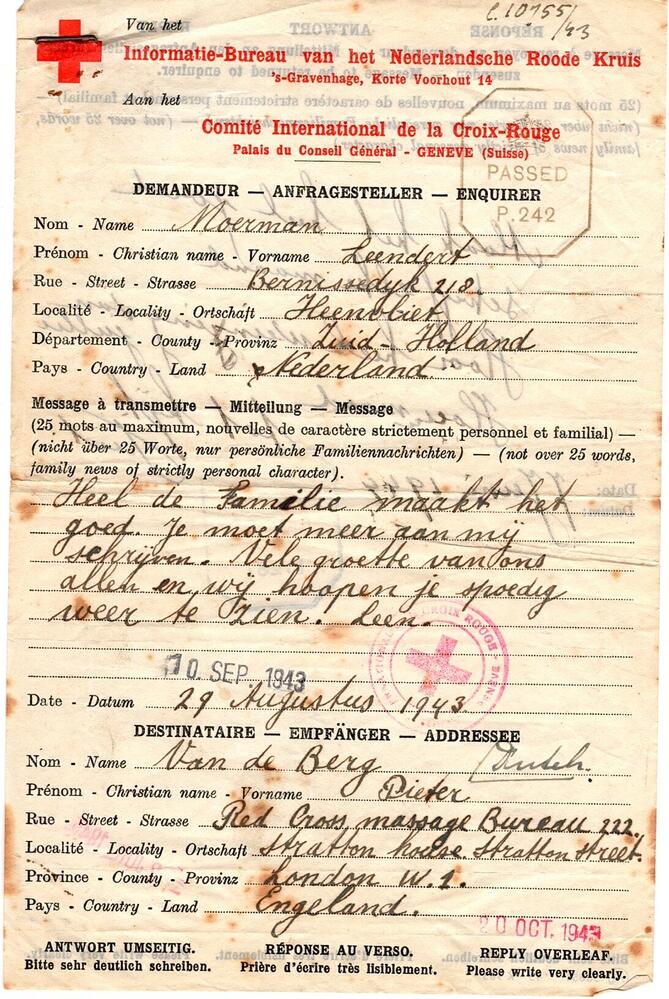 C.10755/43
Van het
Informatie-Bureau van het Nederlandsche Roode Kruis
's-Gravenhage, Korte Voorhout 14
Aan het
Comité International de la Croix-Rouge
Palais du Conseil Général - GENEVE (Suisse)
PASSED
P.242
DEMANDEUR — ANFRAGESTELLER — ENQUIRER
Nom - Name Moerman
Prénom - Christian name - Vorname Leendert
Rue - Street - Strasse Bernissedyk 218.
Localité - Locality - Ortschaft Heenvliet
Département - County - Provinz Zuid-Holland
Pays - Country - Land Nederland
Message à transmettre — Mitteilung — Message
(25 mots au maximum, nouvelles de caractère strictement personnel et familial) —
(nicht über 25 Worte, nur persönliche Familiennachrichten) — (not over 25 words,
family news of strictly personal character).
Heel de Familie maakt het
goed. Je moet meer aan mij
schrijven. Vele groette van ons
allen en wij hoopen je spoedig
weer te zien. Leen.
CROIX ROUGE
10 SEP. 1943
Date - Datum 29 Augustus 1943
DESTINATAIRE — EMPFÄNGER — ADDRESSEE
Nom - Name Van de Berg Dutch.
Prénom - Christian name - Vorname Pieter
Rue - Street - Strasse Red Cross massage Bureau 222.
Localité - Locality - Ortschaft Stratton house Stratton street.
Province - County - Provinz London W.1.
Pays - Country - Land Engeland.
20 OCT. 1943
ANTWORT UMSEITIG. RÉPONSE AU VERSO. REPLY OVERLEAF.
Bitte sehr deutlich schreiben. Prière d'écrire très lisiblement. Please write very clearly.